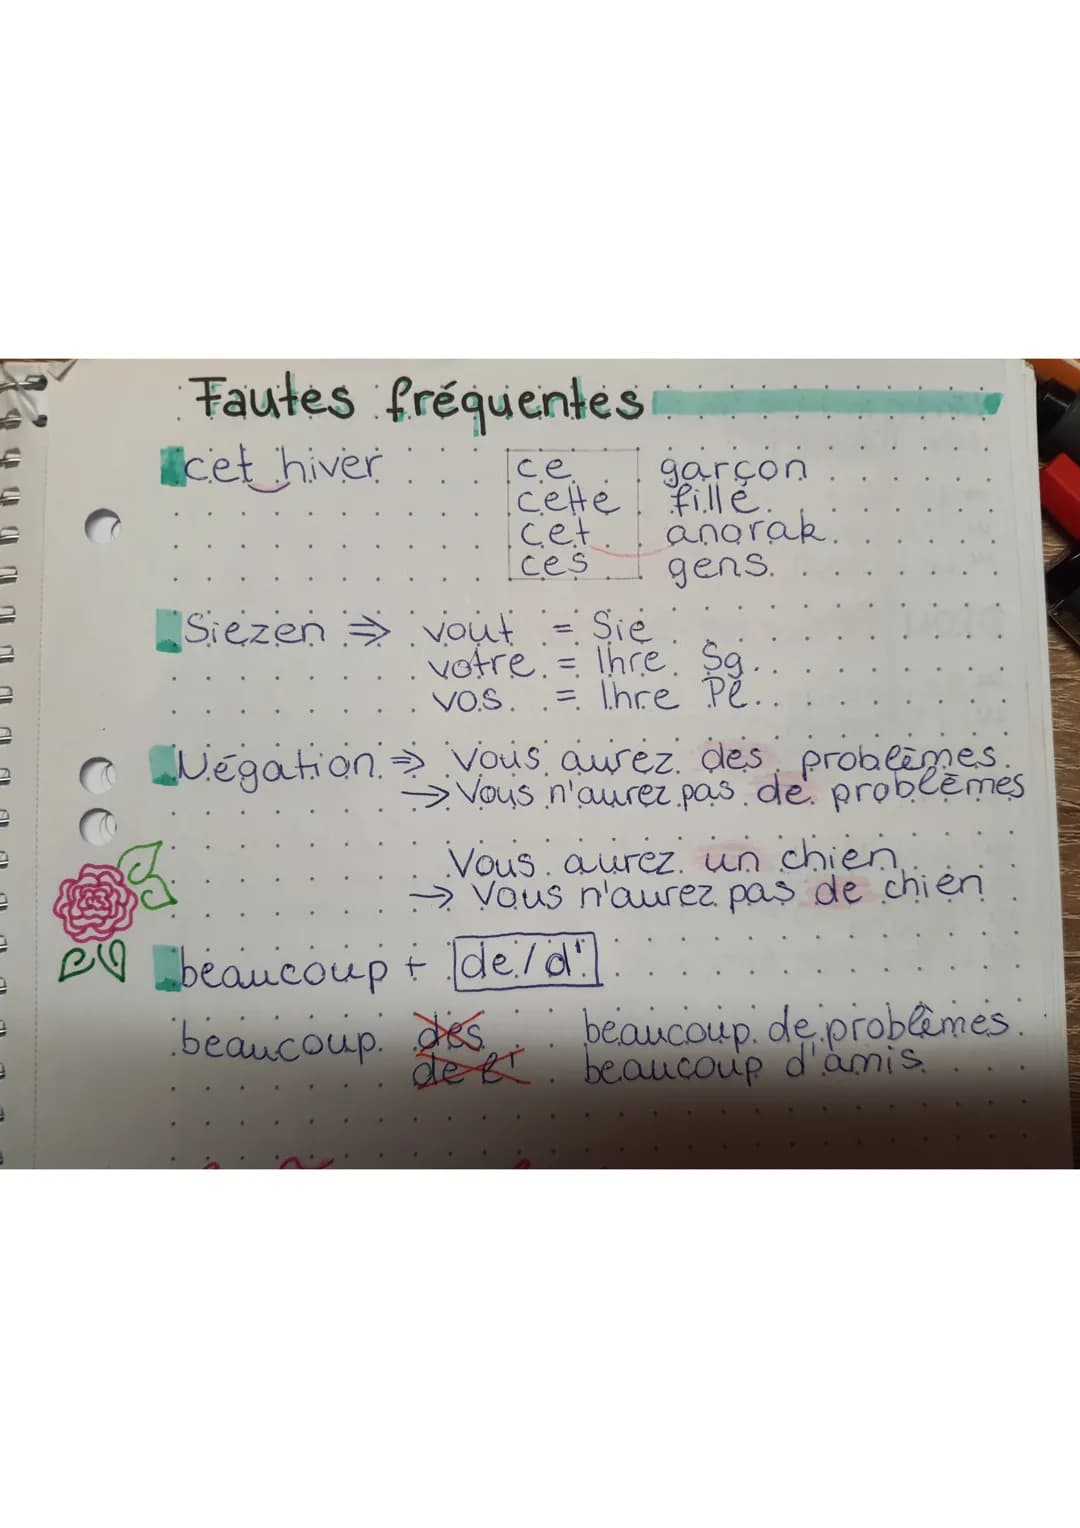 Fautes fréquentes
cet hiver
ce garçon
cette fille
cet anorak
ces gens
Siezen ⇒ vout = Sie
votre = Ihre Sg.
vos = Ihre Pl.
Négation ⇒ Vous aurez des problèmes.
→ Vous n'aurez pas de problèmes
Vous aurez un chien
→ Vous n'aurez pas de chien
beaucoup + de/d'
beaucoup des beaucoup de problêmes.
de l' beaucoup d'amis